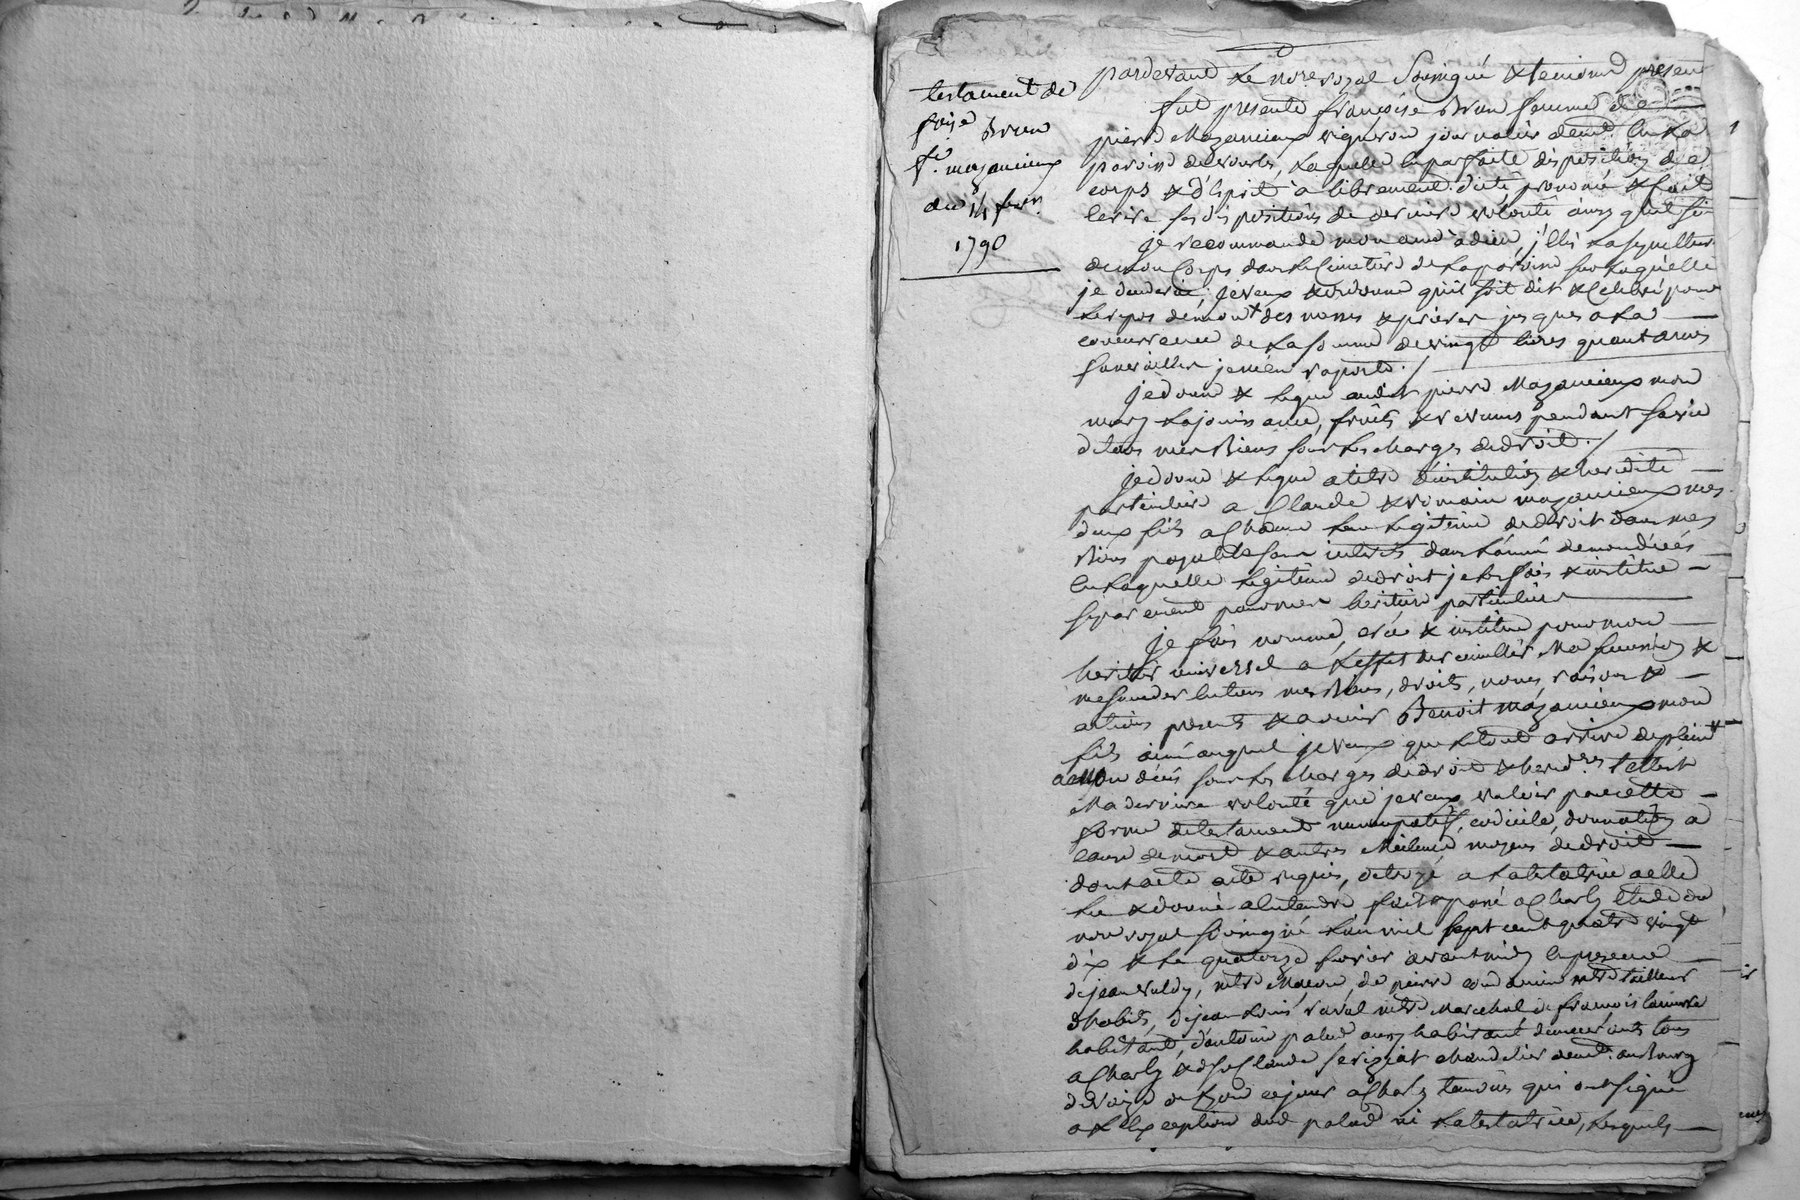 testament de
fse Brun
fe. mazancieux
du 14 fevr.
1790
pardevant le nore royal soussigné & temoins presens
fut presente francoise Brun femme de
pierre Mazancieux vigneron journalier demt. en la
paroisse de vourles, laquelle en parfaite disposition de
corps & d'esprit a librement dicté prononcé & fait
ecrire ses dispositions de derniere volonté ainsy quil suit
je recommande mon ame à dieu, j'elis la sepulture
de mon corps dans le cimetiere de la paroisse sur laquelle
je decederai, je veux & ordonne qu'il soit dit & celebré pour
le repos de mon ame des messes & prieres jusques a la
concurrence de la somme de vingt livres quant a mes
funerailles je m'en raporte./
je donne & legue audit pierre Mazancieux mon
mary la jouissance, fruits & revenus pendant sa vie
de tous mes Biens sous les charges de droit./
je donne & legue a titre d'institution & heredité
particuliere a Claude & romain mazancieux mes
deux fils a chacun leur legitime de droit dans mes
Biens payable sans interets dans l'année de mon décès
en laquelle legitime de droit je les fais & institue
separement pour mes heritiers particuliers
je fais nommé, crée & institue pour mon
heritier universel a l'effet de recueillir Ma succession &
me succeder en tous mes Biens, droits, noms, raisons &
actions presents & a venir Benoit mazancieux mon
fils ainé auquel je veux que le tout arrive de plein
a mon décès sous les charges de droit & hered.res telle est
Ma derniere volonté que je veux valoir par cette
forme de testament nuncupatif, codicile, donnation a
cause de mort & autres Meilleurs moyens de droit
dont acte acte requis, octroyé a la testatrice a elle
lu & donné a entendre fait & passé a Charly etude du
nore royal soussigné l'an mil sept cent quatre vingt
dix & le quatorze fevrier avant midy en presence
de jean Mre Macon, de pierre mtre tailleur
d'habits, de jean Louis raval mtre Marechal de francois
habitant, d'antoine palud aussy habitant demeurants tous
a Charly & de sr Claude serizat chandelier demt. au Bourg
de vaize de Lyon ce jour a Charly temoins qui ont signé
a l'exception dud palud ni la testatrice, lesquels